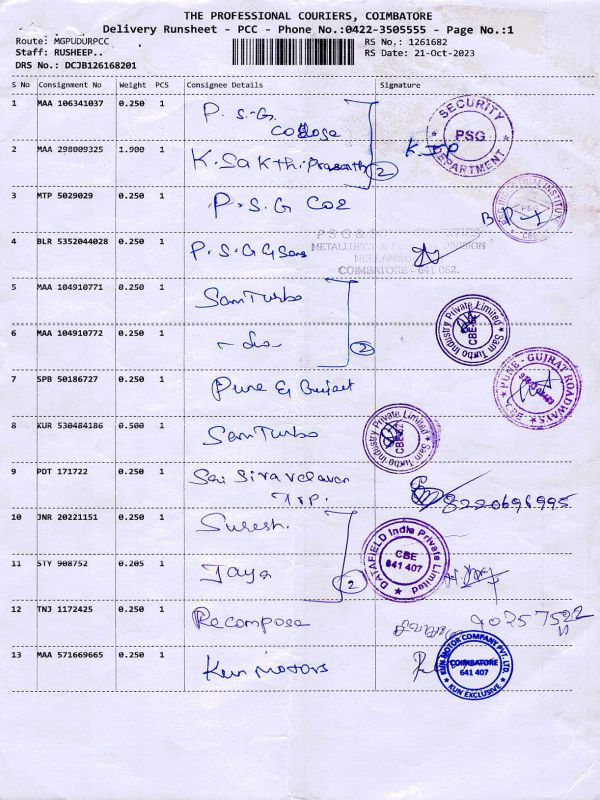 THE PROFESSIONAL COURIERS, COIMBATORE
Delivery Runsheet - PCC - Phone No.:0422-3505555 - Page No.:1
Route: MGPUDURPCC RS No.: 1261682
Staff: RUSHEEP.. RS Date: 21-Oct-2023
DRS No.: DCJB126168201
S No Consignment No Weight PCS Consignee Details Signature
1 MAA 106341037 0.250 1 P. S.G. College
SECURITY PSG DEPARTMENT
2 MAA 298009325 1.900 1 K. Sakthi Prasanth 2
3 MTP 5029029 0.250 1 P. S. G Coe
PSG INDUSTRIAL INSTITUTE PSG CBE
4 BLR 5352044028 0.250 1 P. S. G G Sons
METALLURGY & DIVISION
COIMBATORE - 641 062.
5 MAA 104910771 0.250 1 Sam Turbo
Sam Turbo Industry Private Limited CBE
6 MAA 104910772 0.250 1 - do - 2
7 SPB 50186727 0.250 1 Pune & Gujrat
PUNE - GUJRAT ROADWAYS
8 KUR 530484186 0.500 1 Sam Turbo
Sam Turbo Industry Private Limited CBE
9 PDT 171722 0.250 1 Sai Siva velavan
8220696995
10 JNR 20221151 0.250 1 Suresh.
DATAFIELD India Private Limited CBE 641 407
11 STY 908752 0.205 1 Jaya 2
12 TNJ 1172425 0.250 1 Recompose
13 MAA 571669665 0.250 1 Kun Motors
KUN MOTOR COMPANY PVT. LTD. COIMBATORE 641 407 KUN EXCLUSIVE